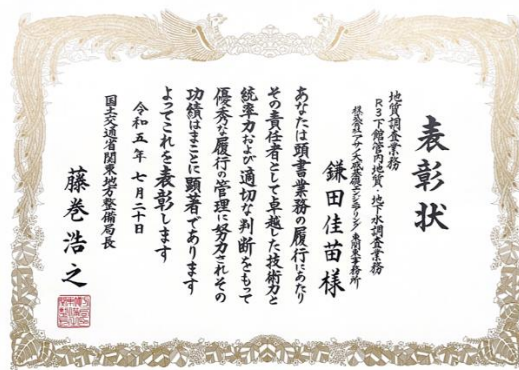 表彰状
地質調査業務
R3下館管内地質・地下水調査業務
株式会社アサノ大成基礎エンジニアリング 東関東事務所
鎌田佳苗様
あなたは頭書業務の履行にあたり
その責任者として卓越した技術力と
統率力および適切な判断をもって
優秀な履行の管理に努力されその
功績はまことに顕著であります
よってこれを表彰します
令和五年七月二十日
国土交通省関東地方整備局長
藤巻浩之